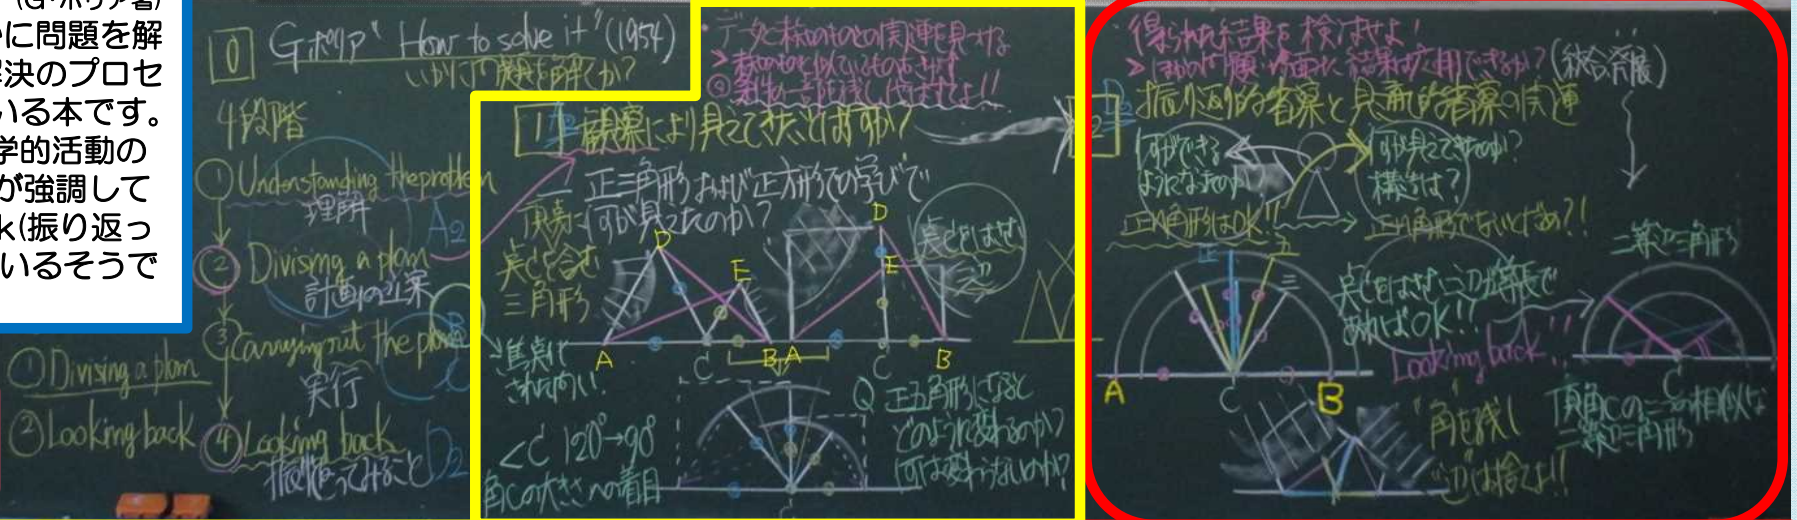 (G・ポリア著)
に問題を解
決のプロセ
いる本です。
学的活動の
が強調して
k(振り返っ
いるそうで
0
G.ポリア "How to solve it" (1954)
いかに問題を解くか?
4段階
① Understanding the problem
理解
A2
② Divising a plan
計画の立案
③ Carrying out the plan
実行
④ Looking back
振り返ってみること
D2
① Divising a plan
② Looking back
データと
の関連を見つける
1
観察により見えてきたことは何か?
正三角形および正方形での学びで
何が見えたのか?
点Cを含む
三角形
D
E
A
C
B
D
E
A
C
B
点Cをはさむ
<C 120°→90°
角Cの大きさへの着目
Q 正五角形になると
どのように変わるのか?
何は変わらないのか?
得られた結果を検討せよ!
結果は応用できるか?
(統合発展)
2
振り返り的考察と見通し的考察の関連
何ができる
ようになったのか
何が見えてきたのか?
構造は?
正n角形はOK!!
正n角形でないとだめ?!
正
五
三
A
C
B
点Cをはさむ二辺が等長で
あればOK!!
Looking back!!
二等辺三角形
C
"角"を残し
"辺"は捨てよ!!
頂角Cの二つの相似な
二等辺三角形